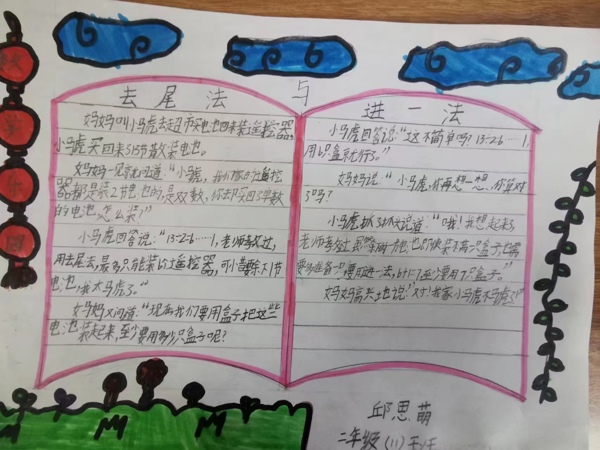 去尾法与进一法
妈妈叫小马虎去超市买电池回来装遥控器。
小马虎买回来13节散装电池。
妈妈一见就问道:"小马虎,我们家的遥控
器都是装2节电池的,是双数,你却买回了单数
的电池,怎么装?"
小马虎回答说:"13÷2=6……1,老师教过,
用去尾法,最多只能装6个遥控器,可以暂缺1节
电池,我太马虎了。"
妈妈又问道:"现在我们要用盒子把这些
电池装起来,至少要用多少只盒子呢?
小马虎回答说:"这不简单吗?13÷2=6……1,
用6只盒就行了。"
妈妈说:"小马虎,你再想一想,你算对
了吗?
小马虎抓了抓头说道:"哦!我想起来了,
老师教过
要用进一法,6+1=7至少要用7只盒子。"
妈妈高兴地说:"对!我家小马虎不马虎了!"
邱思萌
二年级(11)班